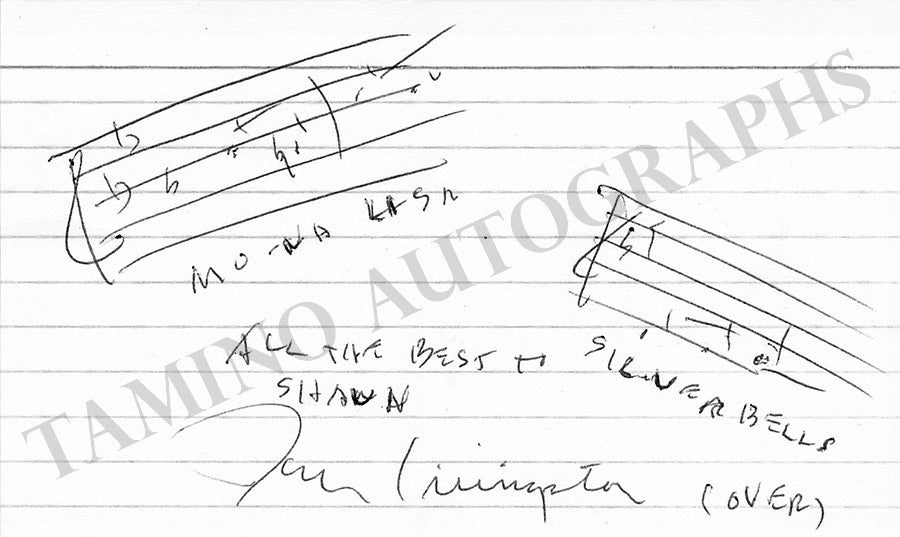 MO-NA LISA
SILVER BELLS
ALL THE BEST TO
SHAWN
Jay Livingston
(OVER)
TAMINO AUTOGRAPHS